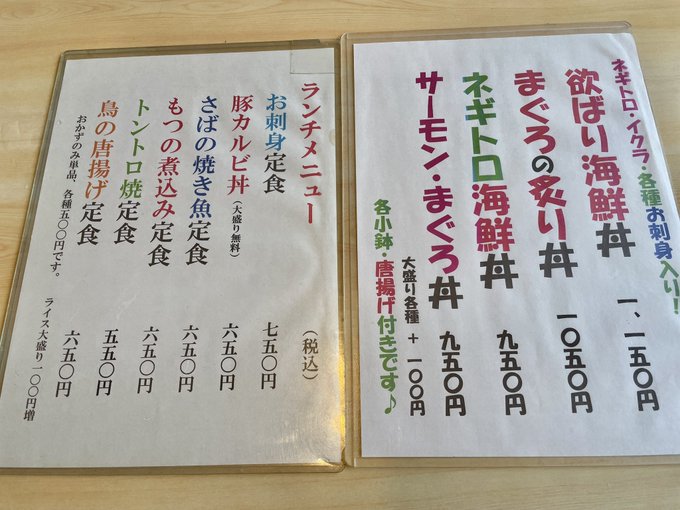 ネギトロ・イクラ・各種お刺身入り!
欲ばり海鮮丼 一、一五〇円
まぐろの炙り丼 一〇五〇円
ネギトロ海鮮丼 九五〇円
サーモン・まぐろ丼 九五〇円
大盛り各種 + 一〇〇円
各小鉢・唐揚げ付きです♪
ランチメニュー (税込)
お刺身定食 七五〇円
豚カルビ丼(大盛り無料) 六五〇円
さばの焼き魚定食 六五〇円
もつの煮込み定食 六五〇円
トントロ焼定食 五五〇円
鳥の唐揚げ定食 六五〇円
おかずのみ単品、各種五〇〇円です。 ライス大盛り一〇〇円増